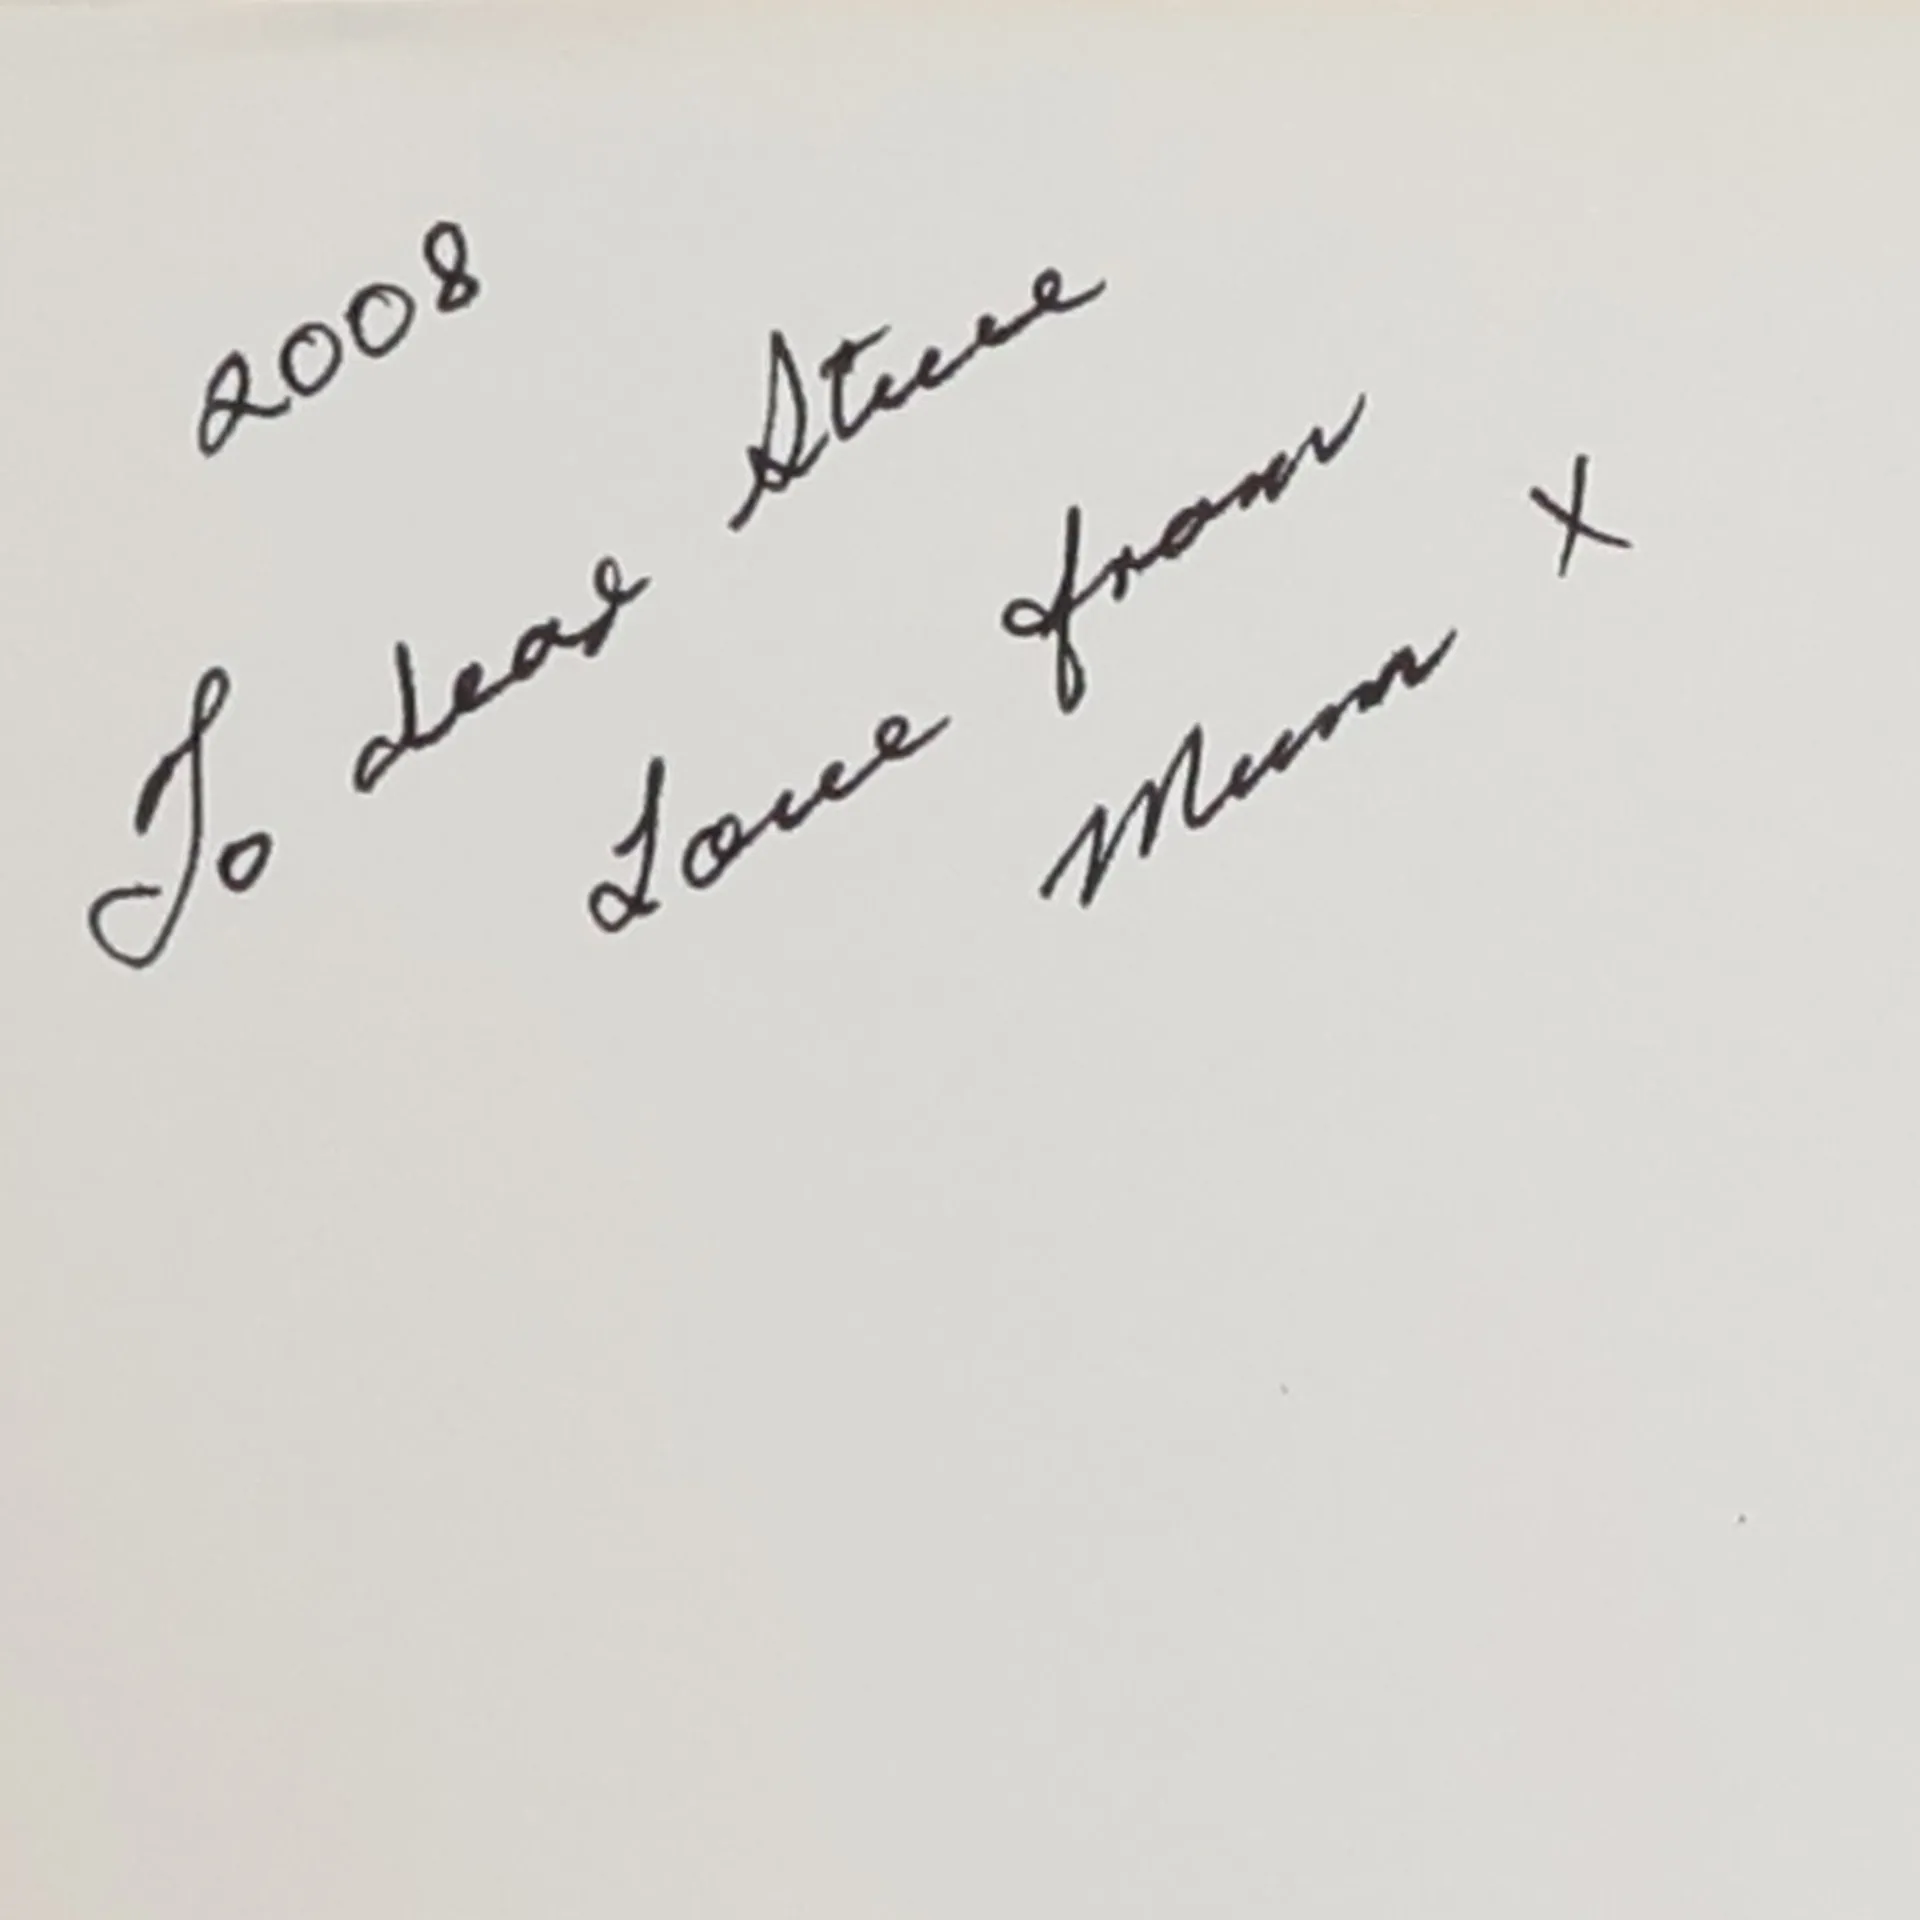 2008
To dear Steve
Love from
Mum x